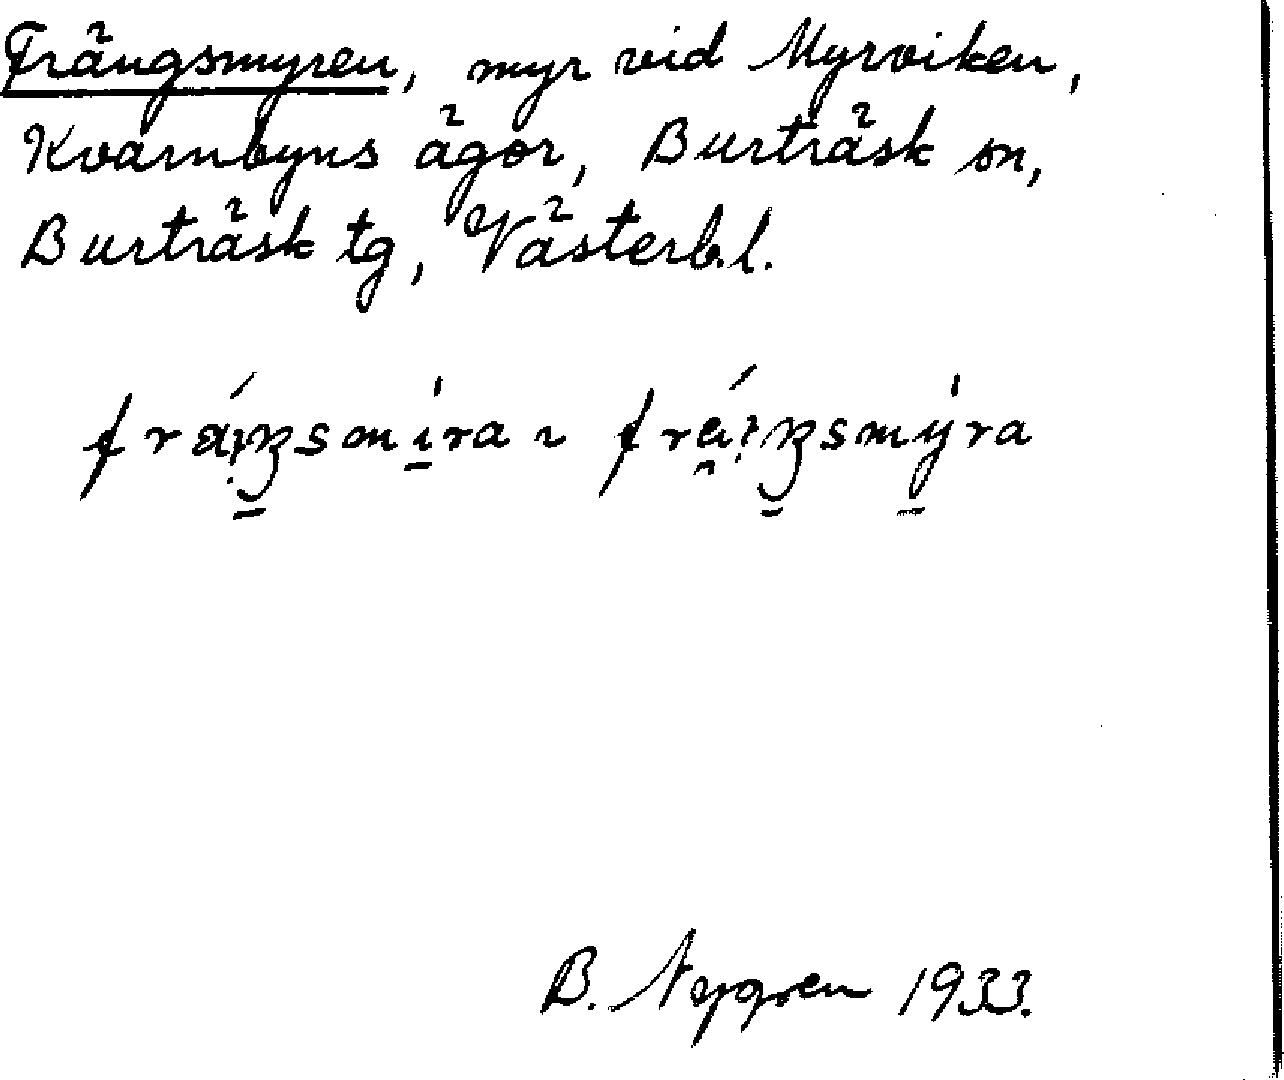 Frängsmyren, myr vid Myrviken,
Kvarnbyns ägor, Burträsk sn,
Burträsk tg, Västerb.l.
B. Nygren 1933.